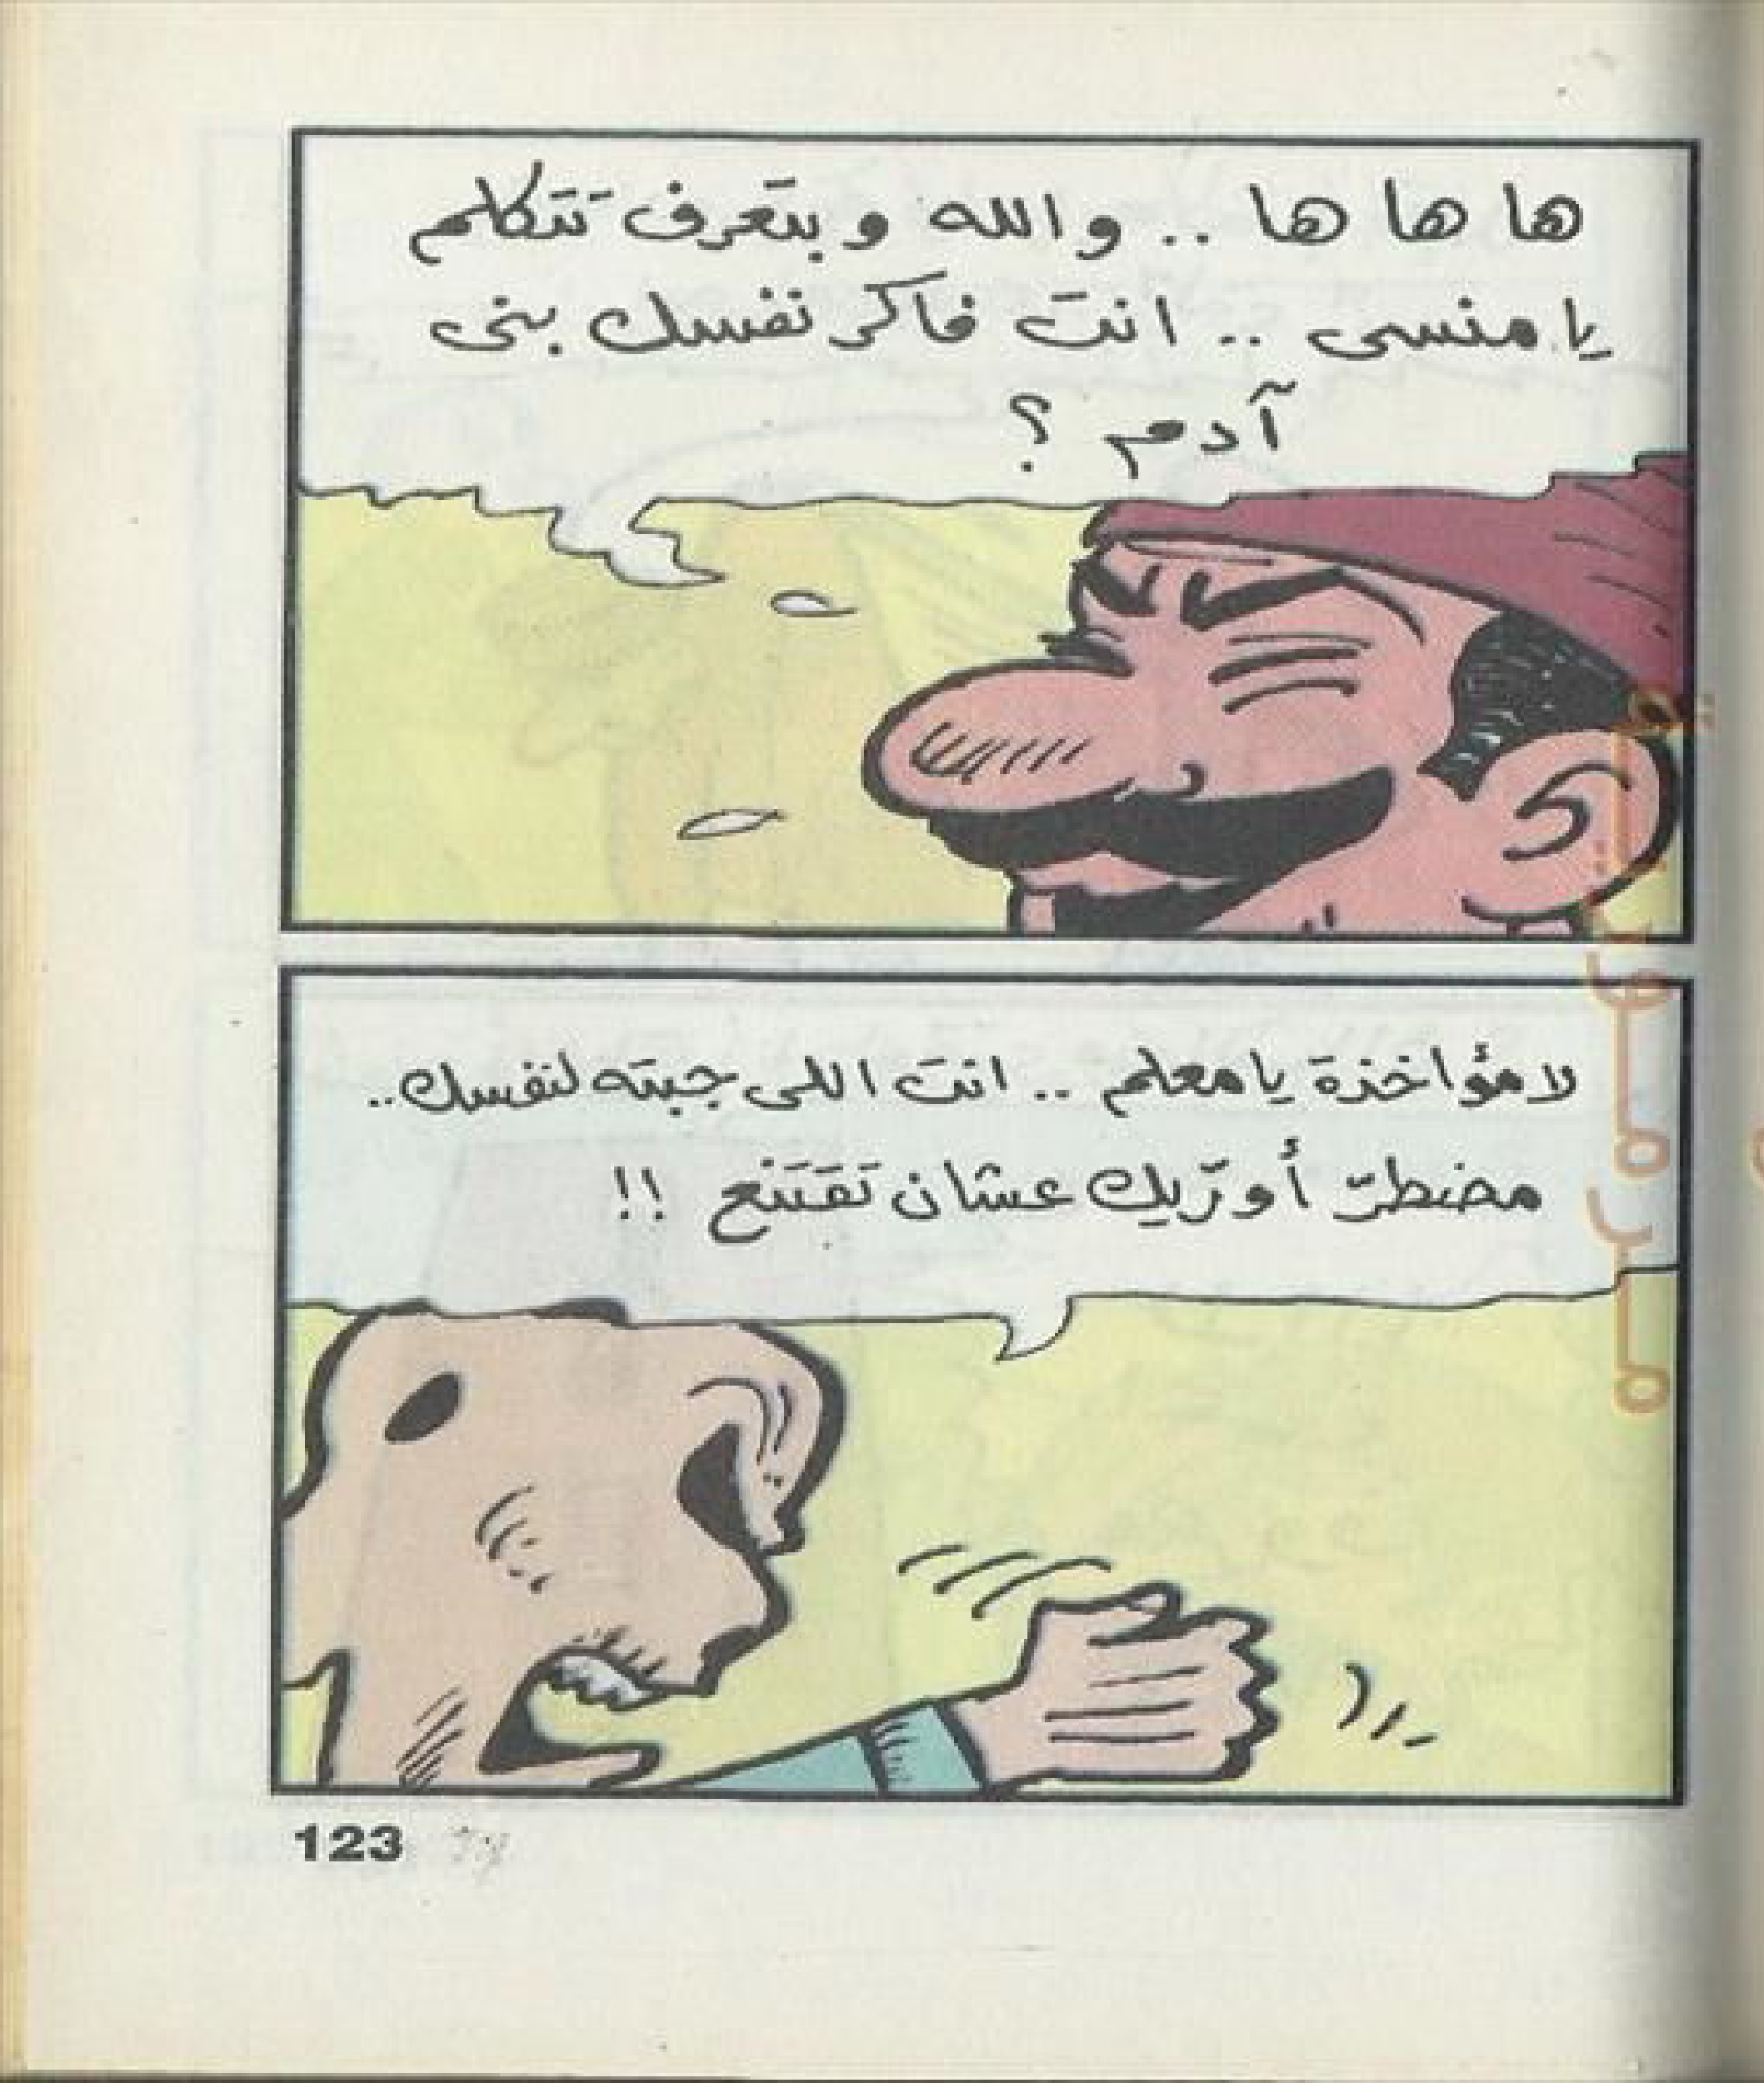 ها ها ها .. والله وبتَعرف تَتكلم
يا منسى .. انتَ فاكر نفسك بنى
آدم ؟
لا مؤاخذة يا معلم .. انتَ اللى جبتَه لنفسك..
مضطرّ أورّيك عشان تَقتَنع !!
123